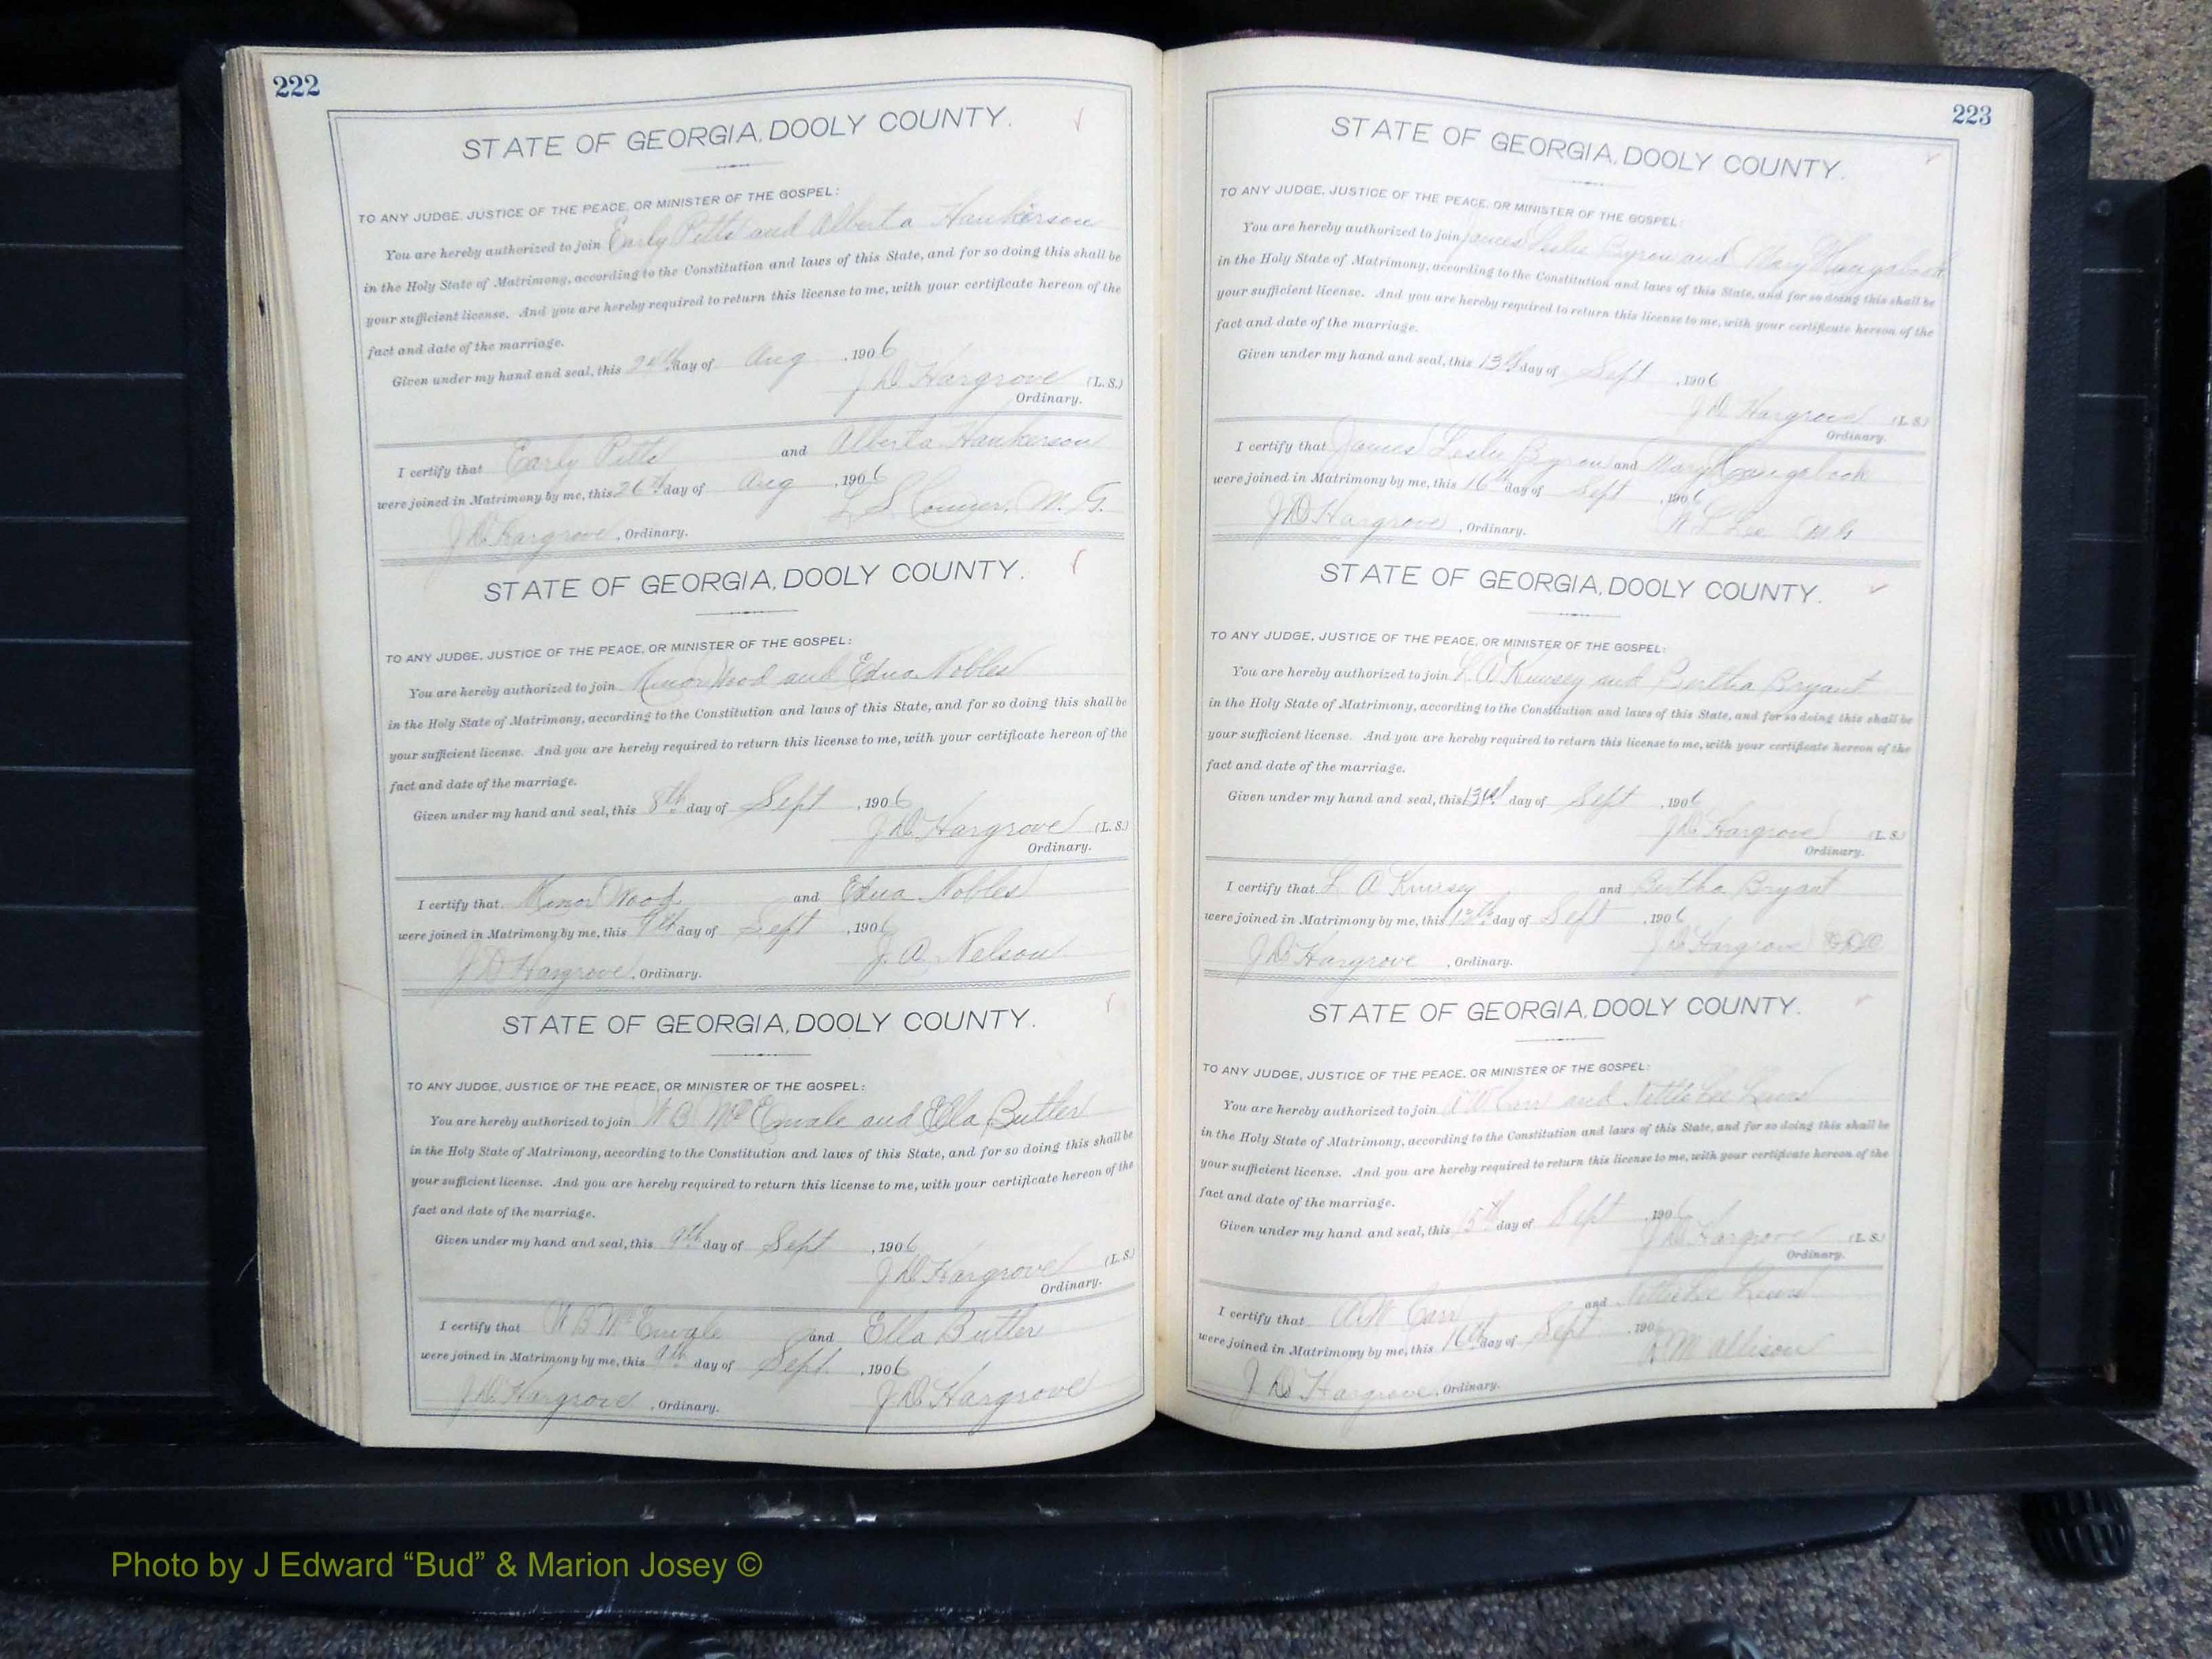 222
STATE OF GEORGIA, DOOLY COUNTY.
TO ANY JUDGE, JUSTICE OF THE PEACE, OR MINISTER OF THE GOSPEL:
You are hereby authorized to join Early Pitts and Alberta Hankerson
in the Holy State of Matrimony, according to the Constitution and laws of this State, and for so doing this shall be
your sufficient license. And you are hereby required to return this license to me, with your certificate hereon of the
fact and date of the marriage.
Given under my hand and seal, this day of Aug , 1906
J D Hargrove (L. S.)
Ordinary.
I certify that Early Pitts and Alberta Hankerson
were joined in Matrimony by me, this 26th day of Aug , 1906
L. S. M. G.
J D Hargrove , Ordinary.
STATE OF GEORGIA, DOOLY COUNTY.
TO ANY JUDGE, JUSTICE OF THE PEACE, OR MINISTER OF THE GOSPEL:
You are hereby authorized to join Minor Wood and Edna Nobles
in the Holy State of Matrimony, according to the Constitution and laws of this State, and for so doing this shall be
your sufficient license. And you are hereby required to return this license to me, with your certificate hereon of the
fact and date of the marriage.
Given under my hand and seal, this 8th day of Sept , 1906
J D Hargrove (L. S.)
Ordinary.
I certify that Minor Wood and Edna Nobles
were joined in Matrimony by me, this 9th day of Sept , 1906
J. A. Nelson
J D Hargrove , Ordinary.
STATE OF GEORGIA, DOOLY COUNTY.
TO ANY JUDGE, JUSTICE OF THE PEACE, OR MINISTER OF THE GOSPEL:
You are hereby authorized to join W B and Ella Butler
in the Holy State of Matrimony, according to the Constitution and laws of this State, and for so doing this shall be
your sufficient license. And you are hereby required to return this license to me, with your certificate hereon of the
fact and date of the marriage.
Given under my hand and seal, this 9th day of Sept , 1906
J D Hargrove (L. S.)
Ordinary.
I certify that W B and Ella Butler
were joined in Matrimony by me, this 9th day of Sept , 1906
J D Hargrove , Ordinary. J D Hargrove
223
STATE OF GEORGIA, DOOLY COUNTY.
TO ANY JUDGE, JUSTICE OF THE PEACE, OR MINISTER OF THE GOSPEL:
You are hereby authorized to join James Leslie Byrom and Mary
in the Holy State of Matrimony, according to the Constitution and laws of this State, and for so doing this shall be
your sufficient license. And you are hereby required to return this license to me, with your certificate hereon of the
fact and date of the marriage.
Given under my hand and seal, this 13th day of Sept , 1906
J D Hargrove (L. S.)
Ordinary.
I certify that James Leslie Byrom and Mary
were joined in Matrimony by me, this 16th day of Sept , 1906
J D Hargrove , Ordinary. Lee M G
STATE OF GEORGIA, DOOLY COUNTY.
TO ANY JUDGE, JUSTICE OF THE PEACE, OR MINISTER OF THE GOSPEL:
You are hereby authorized to join L. A Kimsey and Bertha Bryant
in the Holy State of Matrimony, according to the Constitution and laws of this State, and for so doing this shall be
your sufficient license. And you are hereby required to return this license to me, with your certificate hereon of the
fact and date of the marriage.
Given under my hand and seal, this day of Sept , 1906
J D Hargrove (L. S.)
Ordinary.
I certify that L A Kimsey and Bertha Bryant
were joined in Matrimony by me, this 13th day of Sept , 1906
J D Hargrove , Ordinary. J D Hargrove
STATE OF GEORGIA, DOOLY COUNTY.
TO ANY JUDGE, JUSTICE OF THE PEACE, OR MINISTER OF THE GOSPEL:
You are hereby authorized to join A W Carr and Nettie Lee
in the Holy State of Matrimony, according to the Constitution and laws of this State, and for so doing this shall be
your sufficient license. And you are hereby required to return this license to me, with your certificate hereon of the
fact and date of the marriage.
Given under my hand and seal, this 15th day of Sept , 1906
J D Hargrove (L. S.)
Ordinary.
I certify that A W Carr and Nettie Lee
were joined in Matrimony by me, this 16th day of Sept , 190
M Allison
J D Hargrove , Ordinary.
Photo by J Edward “Bud” & Marion Josey ©